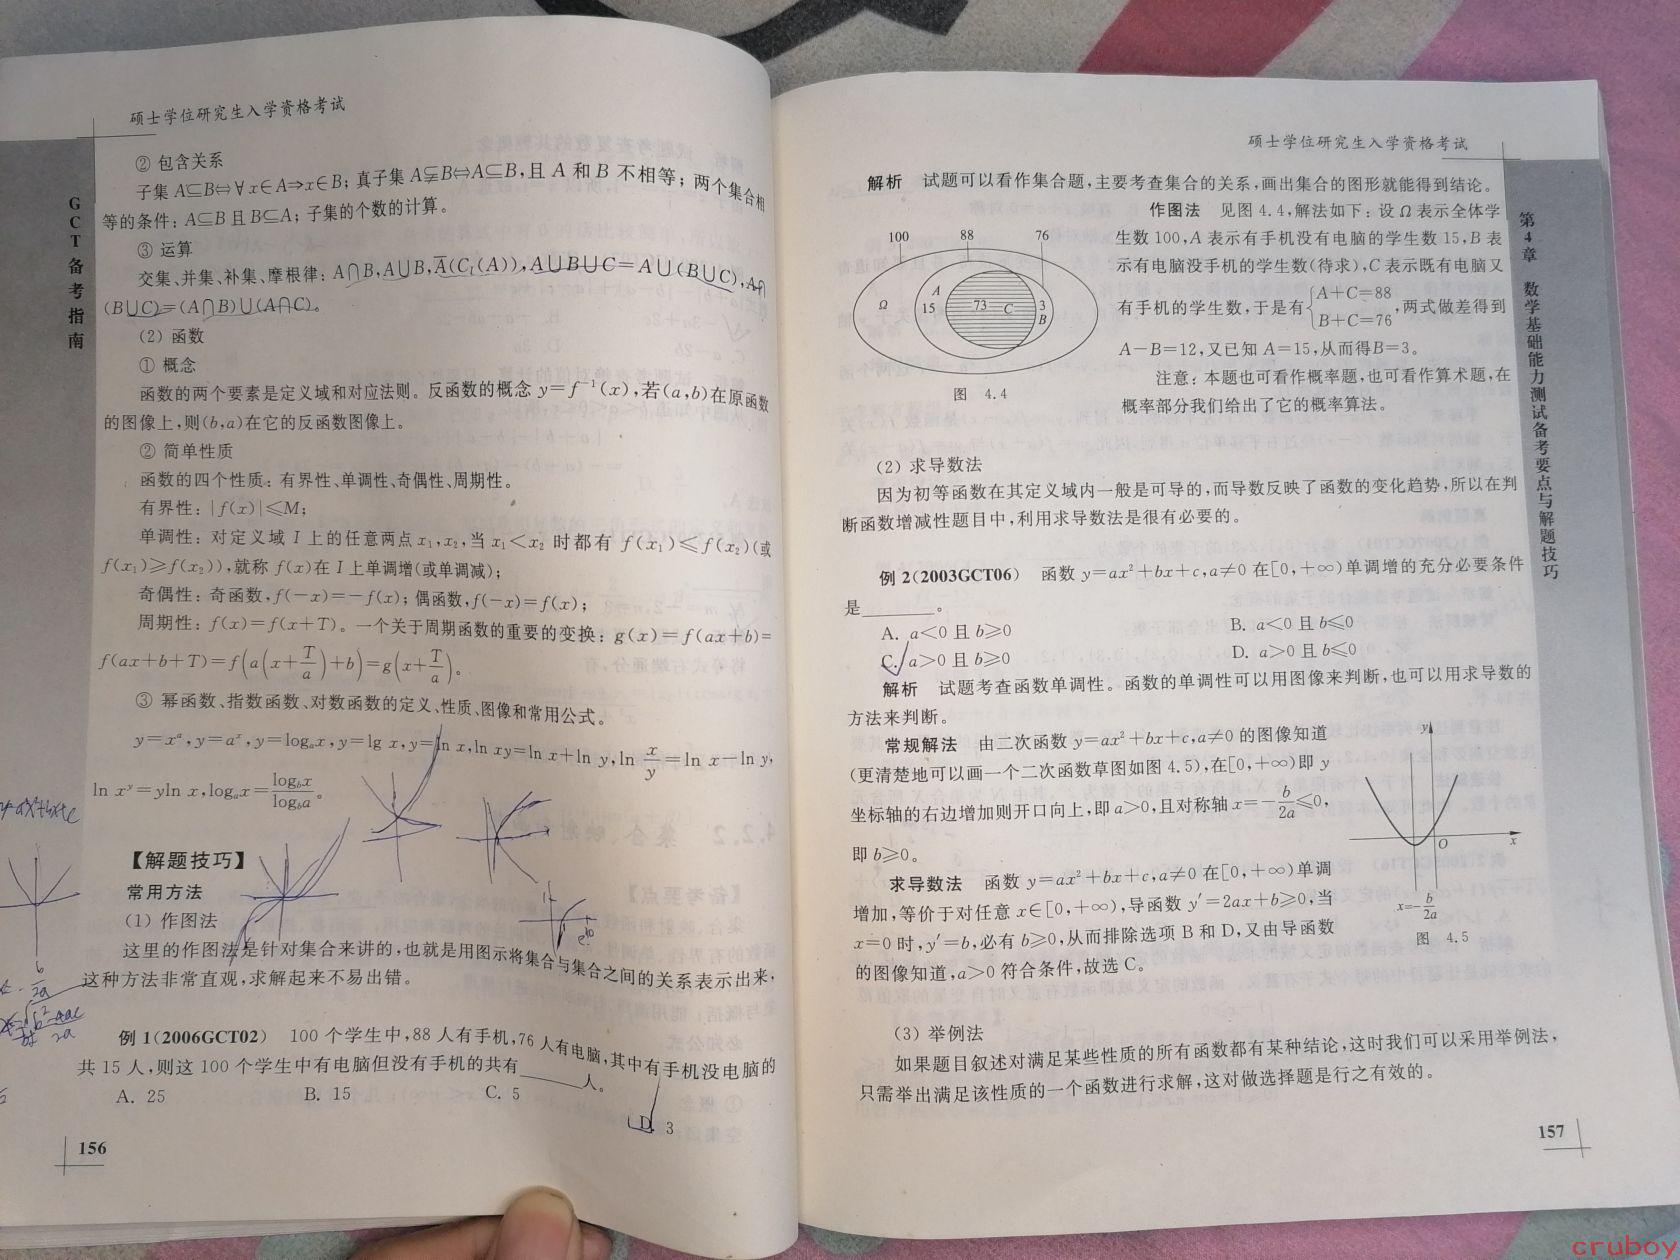 硕士学位研究生入学资格考试
GCT备考指南
② 包含关系
子集 A⊆B⇔∀x∈A⇒x∈B; 真子集 A⫋B⇔A⊆B,且 A 和 B 不相等; 两个集合相
等的条件: A⊆B 且 B⊆A; 子集的个数的计算。
③ 运算
交集、并集、补集、摩根律: A∩B,A∪B,A̅(C_I(A)),A∪B∪C=A∪(B∪C),A∩
(B∪C)=(A∩B)∪(A∩C)。
(2) 函数
① 概念
函数的两个要素是定义域和对应法则。反函数的概念 y=f⁻¹(x),若(a,b)在原函数
的图像上,则(b,a)在它的反函数图像上。
② 简单性质
函数的四个性质: 有界性、单调性、奇偶性、周期性。
有界性: |f(x)|≤M;
单调性: 对定义域 I 上的任意两点 x₁,x₂,当 x₁<x₂ 时都有 f(x₁)≤f(x₂)(或
f(x₁)≥f(x₂)),就称 f(x)在 I 上单调增(或单调减);
奇偶性: 奇函数,f(−x)=−f(x); 偶函数,f(−x)=f(x);
周期性: f(x)=f(x+T)。一个关于周期函数的重要的变换: g(x)=f(ax+b)=
f(ax+b+T)=f(a(x+T/a)+b)=g(x+T/a)。
③ 幂函数、指数函数、对数函数的定义、性质、图像和常用公式。
y=xᵃ,y=aˣ,y=logₐx,y=lg x,y=ln x,ln xy=ln x+ln y,ln x/y=ln x−ln y,
ln xʸ=yln x,logₐx=log_b x/log_b a。
【解题技巧】
常用方法
(1) 作图法
这里的作图法是针对集合来讲的,也就是用图示将集合与集合之间的关系表示出来,
这种方法非常直观,求解起来不易出错。
例 1(2006GCT02) 100 个学生中,88 人有手机,76 人有电脑,其中有手机没电脑的
共 15 人,则这 100 个学生中有电脑但没有手机的共有______人。
A. 25 B. 15 C. 5 D. 3
156
硕士学位研究生入学资格考试
第4章 数学基础能力测试备考要点与解题技巧
解析 试题可以看作集合题,主要考查集合的关系,画出集合的图形就能得到结论。
作图法 见图 4.4,解法如下: 设 Ω 表示全体学
生数 100,A 表示有手机没有电脑的学生数 15,B 表
示有电脑没手机的学生数(待求),C 表示既有电脑又
有手机的学生数,于是有{A+C=88 B+C=76,两式做差得到
A−B=12,又已知 A=15,从而得B=3。
注意: 本题也可看作概率题,也可看作算术题,在
概率部分我们给出了它的概率算法。
100 88 76
Ω A 15 73 C 3 B
图 4.4
(2) 求导数法
因为初等函数在其定义域内一般是可导的,而导数反映了函数的变化趋势,所以在判
断函数增减性题目中,利用求导数法是很有必要的。
例 2(2003GCT06) 函数 y=ax²+bx+c,a≠0 在[0,+∞)单调增的充分必要条件
是________。
A. a<0 且 b≥0 B. a<0 且 b≤0
C. a>0 且 b≥0 D. a>0 且 b≤0
解析 试题考查函数单调性。函数的单调性可以用图像来判断,也可以用求导数的
方法来判断。
常规解法 由二次函数 y=ax²+bx+c,a≠0 的图像知道
(更清楚地可以画一个二次函数草图如图 4.5),在[0,+∞)即 y
坐标轴的右边增加则开口向上,即 a>0,且对称轴 x=−b/2a≤0,
即 b≥0。
求导数法 函数 y=ax²+bx+c,a≠0 在[0,+∞)单调
增加,等价于对任意 x∈[0,+∞),导函数 y′=2ax+b≥0,当
x=0 时,y′=b,必有 b≥0,从而排除选项 B 和 D,又由导函数
的图像知道,a>0 符合条件,故选 C。
y
O
x
x=−b/2a
图 4.5
(3) 举例法
如果题目叙述对满足某些性质的所有函数都有某种结论,这时我们可以采用举例法,
只需举出满足该性质的一个函数进行求解,这对做选择题是行之有效的。
157
cruboy